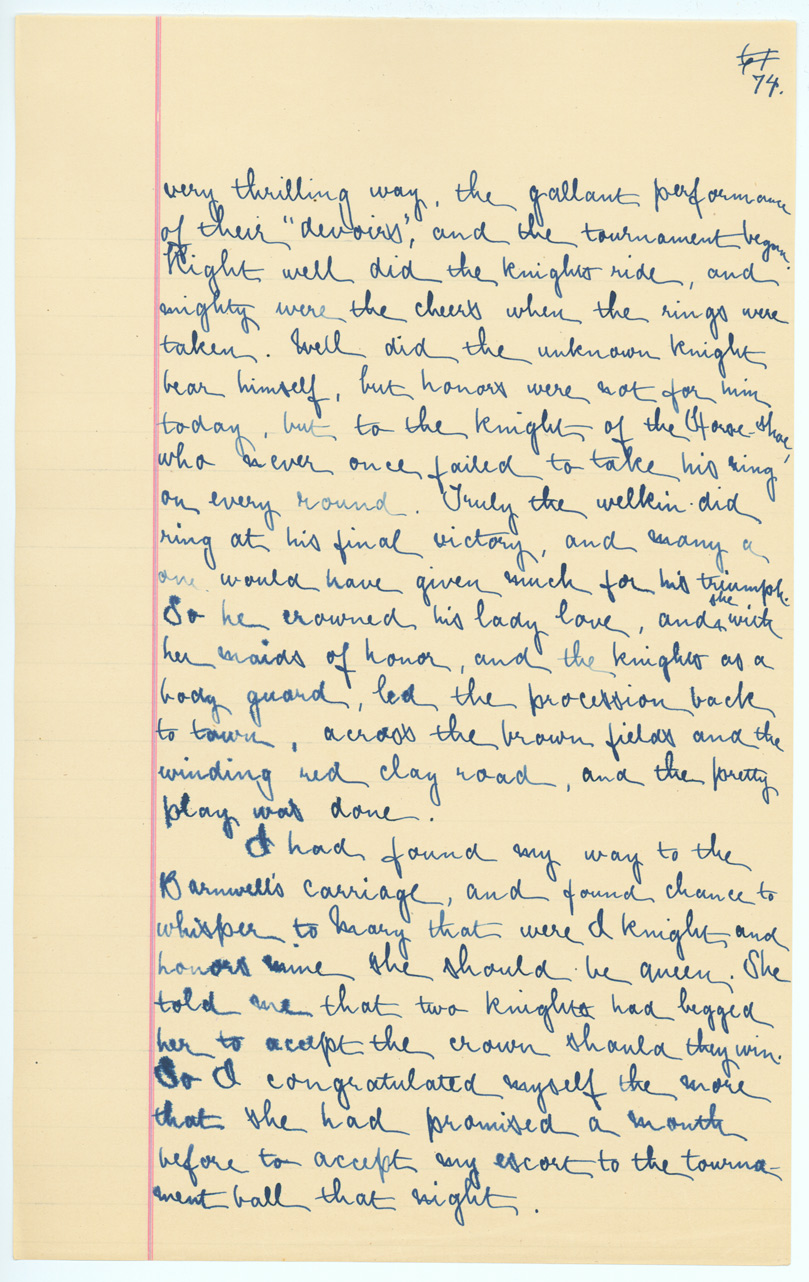 74.
very thrilling way, the gallant performance
of their "devoirs", and the tournament began.
Right well did the knights ride, and
mighty were the cheers when the rings were
taken. Well did the unknown knight
bear himself, but honors were not for him
today, but to the knight of the Horse-shoe,
who never once failed to take his ring
on every round. Truly the welkin did
ring at his final victory, and many a
one would have given much for his triumph.
So he crowned his lady love, and she with
her maids of honor, and the knights as a
body guard, led the procession back
to town, across the brown fields and the
winding red clay road, and the pretty
play was done.
I had found my way to the
Barnwell's carriage, and found chance to
whisper to Mary that were I knight and
honors mine she should be queen. She
told me that two knights had begged
her to accept the crown should they win.
So I congratulated myself the more
that she had promised a month
before to accept my escort to the tourna-
ment ball that night.